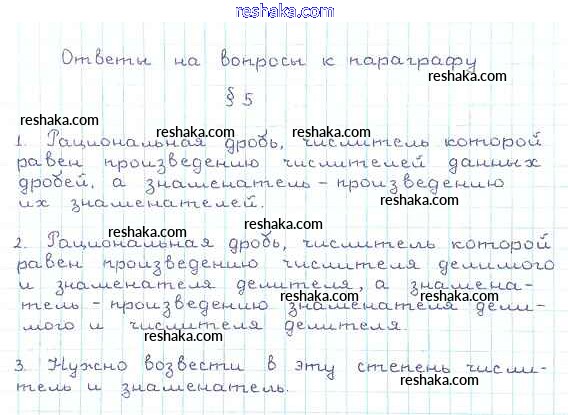 reshaka.com
Ответы на вопросы к параграфу
reshaka.com
§ 5
reshaka.com
reshaka.com
reshaka.com
1. Рациональная дробь, числитель которой
равен произведению числителей данных
дробей, а знаменатель – произведению
reshaka.com
их знаменателей.
reshaka.com
reshaka.com
2. Рациональная дробь, числитель которой
равен произведению числителя делимого
и знаменателя делителя, а знамена-
reshaka.com
reshaka.com
тель – произведению знаменателя дели-
мого и числителя делителя.
reshaka.com
3. Нужно возвести в эту степень числи-
reshaka.com
тель и знаменатель.